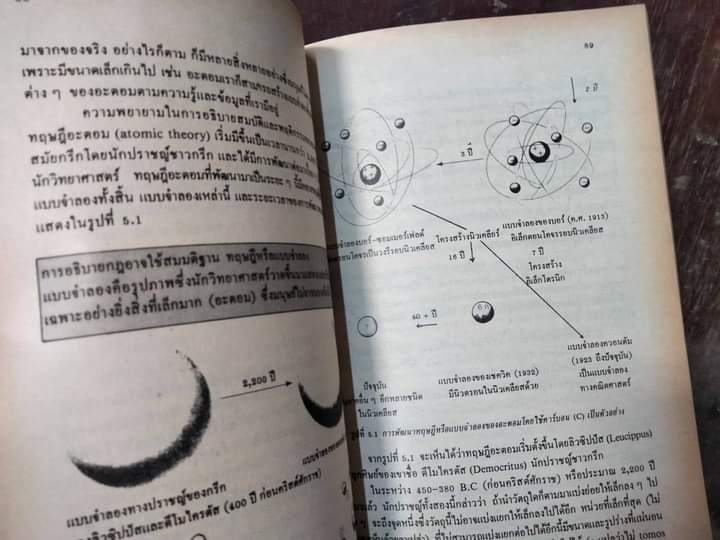 มาจากของจริง อย่างไรก็ตาม ก็มีหลายสิ่งหลายอย่างซึ่ง
เพราะมีขนาดเล็กเกินไป เช่น อะตอมเราก็สามารถสร้าง
ต่าง ๆ ของอะตอมตามความรู้และข้อมูลที่เรามีอยู่
ความพยายามในการอธิบายสมบัติและ
ทฤษฎีอะตอม (atomic theory) เริ่มมีขึ้นเป็นเวลานานกว่า
สมัยกรีกโดยนักปราชญ์ชาวกรีก และได้มีการพัฒนา
นักวิทยาศาสตร์ ทฤษฎีอะตอมที่พัฒนามาเป็นระยะ ๆ นี้
แบบจำลองทั้งสิ้น แบบจำลองเหล่านี้ และระยะเวลาของการ
แสดงในรูปที่ 5.1
การอธิบายกฎอาจใช้สมมติฐาน ทฤษฎีหรือแบบจำลอง
แบบจำลองคือรูปภาพซึ่งนักวิทยาศาสตร์วาดขึ้น
เฉพาะอย่างยิ่งสิ่งที่เล็กมาก (อะตอม) ซึ่งมนุษย์
2,200 ปี
แบบจำลองทางปราชญ์ของกรีก
(400 ปี ก่อนคริสต์ศักราช)
89
2 ปี
3 ปี
แบบจำลองบอร์-ซอมเมอร์เฟลด์
เป็นวงรีรอบนิวเคลียส
โครงสร้างนิวเคลียร์
แบบจำลองของบอร์ (ค.ศ. 1913)
อิเล็กตอนโคจรรอบนิวเคลียส
16 ปี
7 ปี
โครงสร้าง
อิเล็กโตรนิก
?
40 + ปี
6n
ปัจจุบัน
อื่น ๆ อีกหลายชนิด
ในนิวเคลียส
แบบจำลองของแชดวิค (1932)
มีนิวตรอนในนิวเคลียสด้วย
แบบจำลองควอนตัม
(1923 ถึงปัจจุบัน)
เป็นแบบจำลอง
ทางคณิตศาสตร์
รูปที่ 5.1 การพัฒนาทฤษฎีหรือแบบจำลองของอะตอมโดยใช้คาร์บอน (C) เป็นตัวอย่าง
จากรูปที่ 5.1 จะเห็นได้ว่าทฤษฎีอะตอมเริ่มตั้งขึ้นโดยลิวซิปปัส (Leucippus)
ลูกศิษย์ของเขาชื่อ ดีโมไครตัส (Democritus) นักปราชญ์ชาวกรีก
ในระหว่าง 450-380 B.C (ก่อนคริสต์ศักราช) หรือประมาณ 2,200 ปี
นักปราชญ์ทั้งสองนี้กล่าวว่า ถ้านำวัตถุใดก็ตามมาแบ่งย่อยให้เล็กลง ๆ ไป
ๆ จะถึงจุดหนึ่งซึ่งวัตถุนี้ไม่อาจแบ่งแยกให้เล็กลงไปได้อีก หน่วยที่เล็กที่สุด (ไม่
ที่ไม่สามารถแบ่งแยกต่อไปได้อีกนี้มีขนาดและรูปร่างที่แน่นอน
แปลว่าไม่ tomos